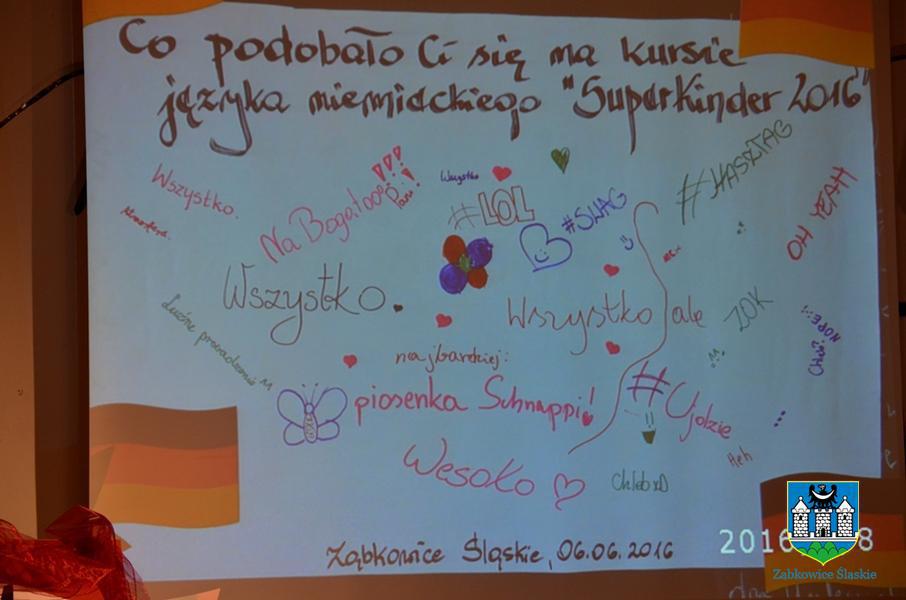 Co podobało Ci się na kursie
języka niemieckiego "Superkinder 2016"
Wszystko.
Na Bogatoo!!! Pani!
Wszystko
#LOL
#SWAG
#HASZTAG
OH YEAH
Wszystko.
Wszystko ale
ZOK
NOPE
Luźne prowadzenie ^^
najbardziej:
piosenka Schnappi!
#Ujdzie
Heh
Wesoło
Chleb xD
Ząbkowice Śląskie, 06.06.2016
2016
8
Ząbkowice Śląskie